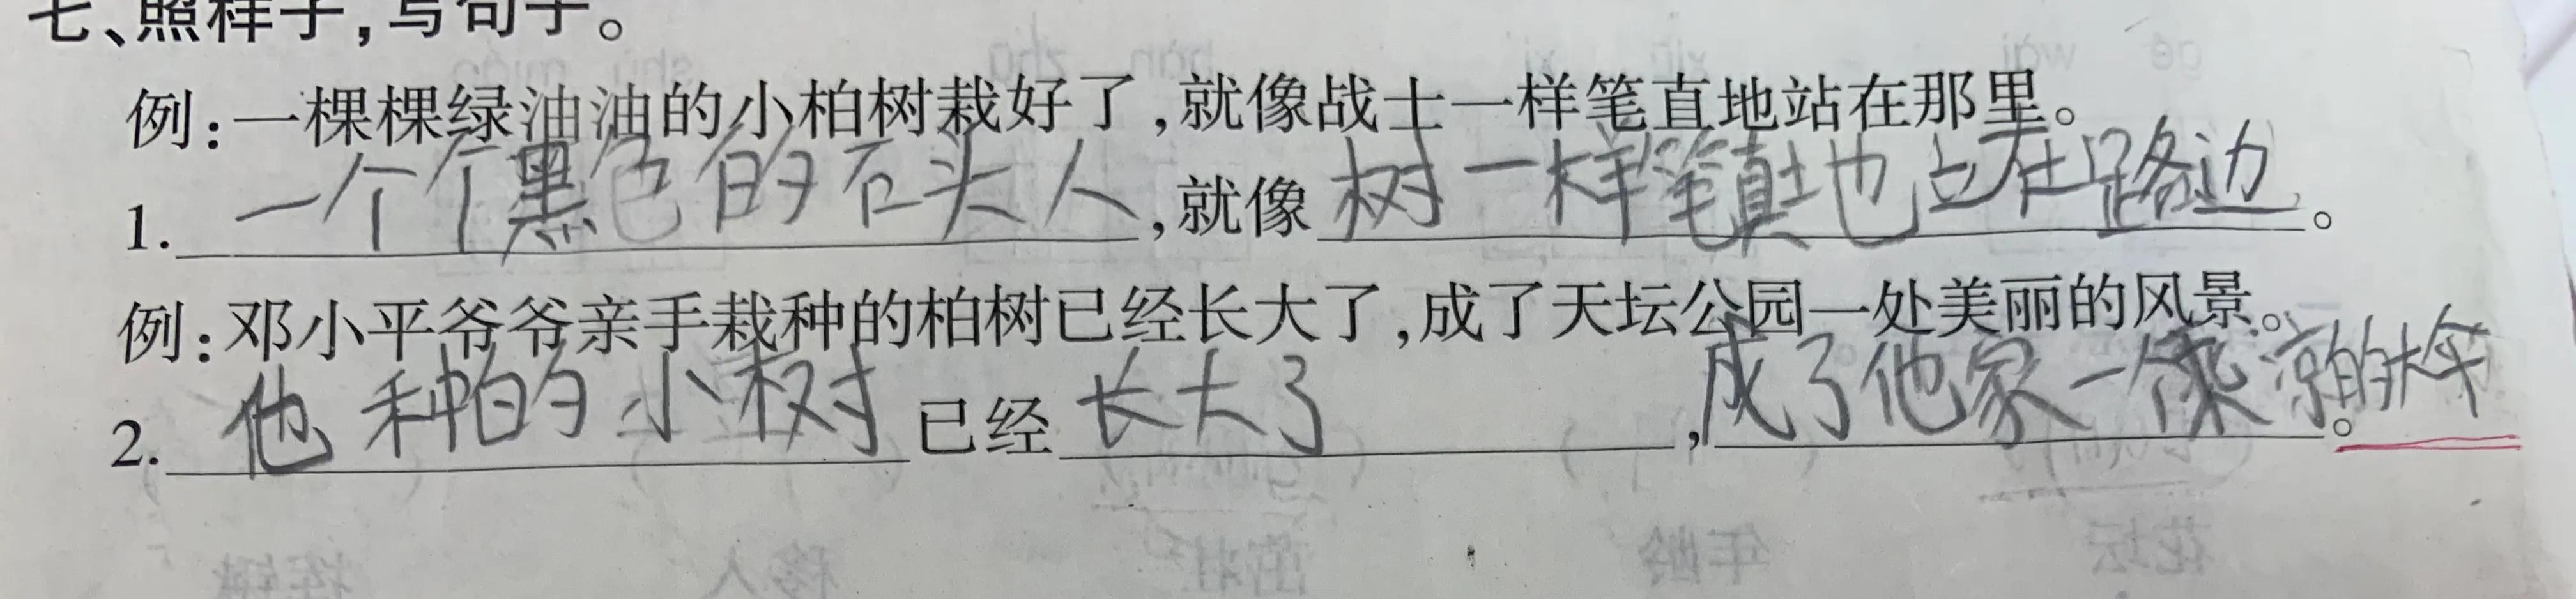 七、照样子,写句子。
例:一棵棵绿油油的小柏树栽好了,就像战士一样笔直地站在那里。
1. 一个个黑色的石头人,就像树一样笔真地立在路边。
例:邓小平爷爷亲手栽种的柏树已经长大了,成了天坛公园一处美丽的风景。
2. 他种的小树已经长大了,成了他家一个乘凉的大伞。